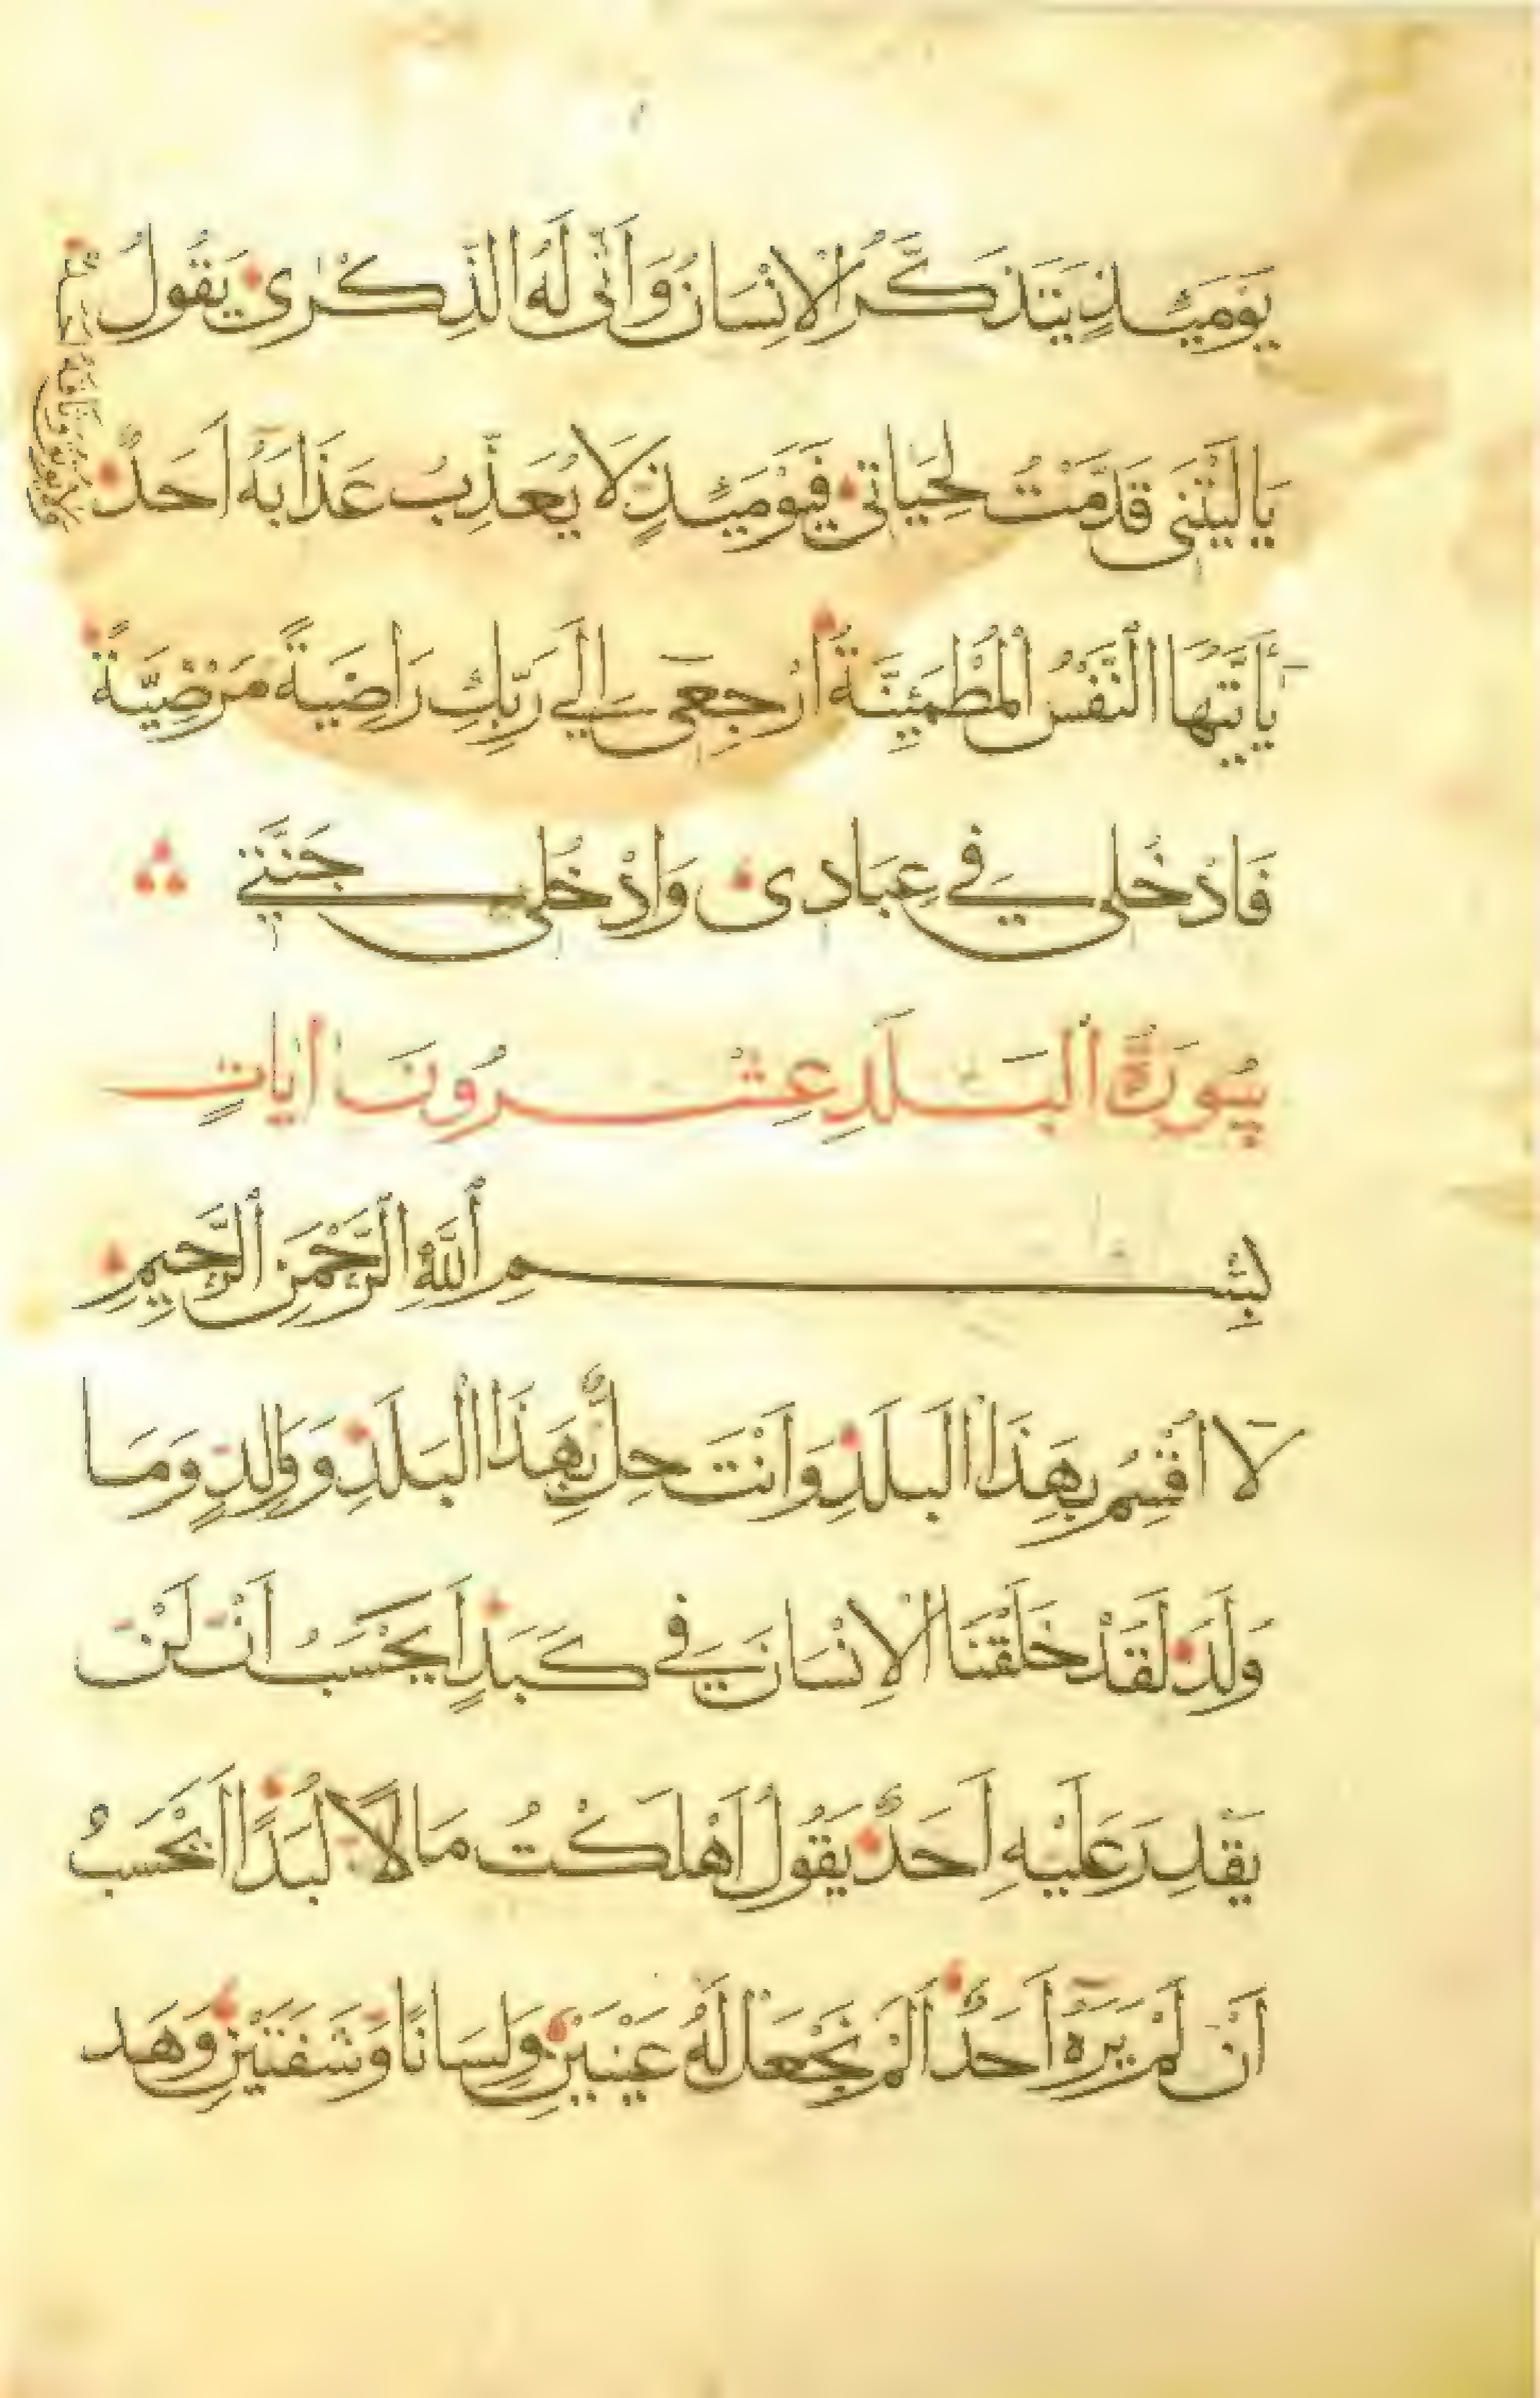 يَوْمَئِذٍ يَتَذَكَّرُ الْاِنْسَانُ وَاَنّٰى لَهُ الذِّكْرٰى يَقُولُ
يَا لَيْتَنِى قَدَّمْتُ لِحَيَاتِى فَيَوْمَئِذٍ لَا يُعَذِّبُ عَذَابَهُ اَحَدٌ
يَاَيَّتُهَا النَّفْسُ الْمُطْمَئِنَّةُ ارْجِعِى اِلَى رَبِّكِ رَاضِيَةً مَرْضِيَّةً
فَادْخُلِى فِى عِبَادِى وَادْخُلِى جَنَّتِى
سُورَةُ الْبَلَدِ عِشْرُونَ اٰيَاتٍ
بِسْمِ اللّٰهِ الرَّحْمٰنِ الرَّحِيمِ
لَا اُقْسِمُ بِهَذَا الْبَلَدِ وَاَنْتَ حِلٌّ بِهَذَا الْبَلَدِ وَوَالِدٍ وَمَا
وَلَدَ لَقَدْ خَلَقْنَا الْاِنْسَانَ فِى كَبَدٍ اَيَحْسَبُ اَنْ لَنْ
يَقْدِرَ عَلَيْهِ اَحَدٌ يَقُولُ اَهْلَكْتُ مَالًا لُبَدًا اَيَحْسَبُ
اَنْ لَمْ يَرَهُ اَحَدٌ اَلَمْ نَجْعَلْ لَهُ عَيْنَيْنِ وَلِسَانًا وَشَفَتَيْنِ وَهَد